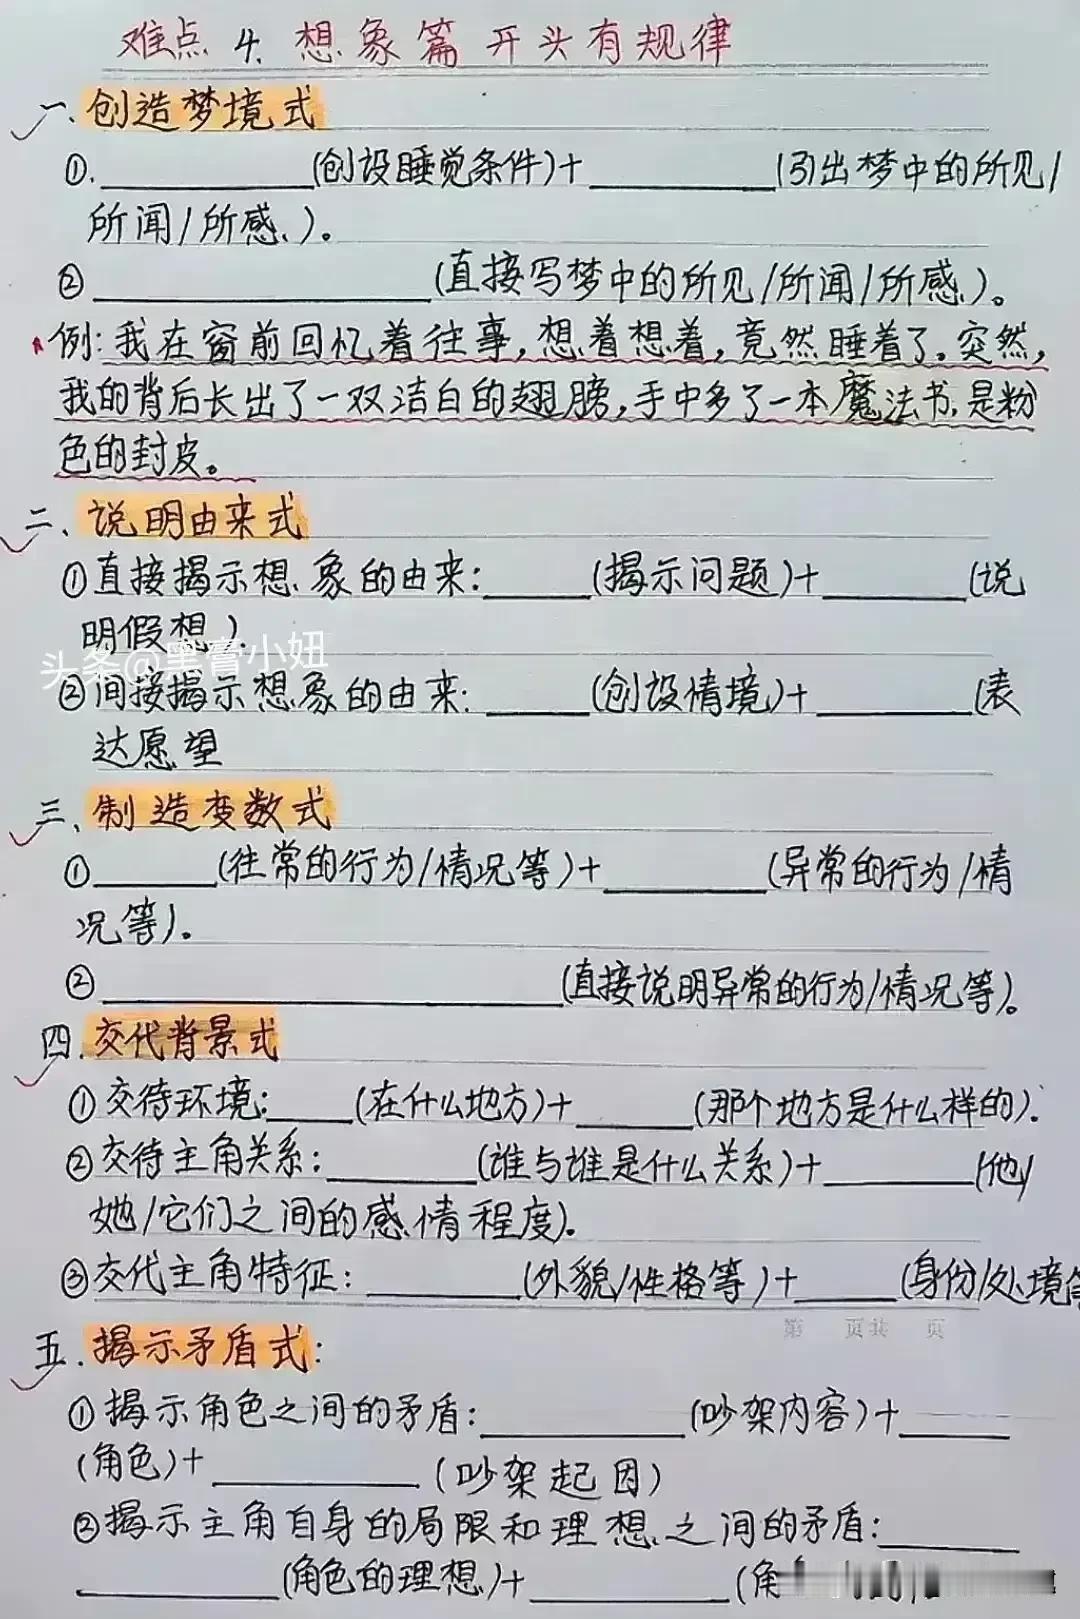 难点4.想象篇开头有规律
一、创造梦境式
①.________(创设睡觉条件)+________(引出梦中的所见/
所闻/所感、)。
②________(直接写梦中的所见/所闻/所感、)。
例:我在窗前回忆着往事,想着想着,竟然睡着了。突然,
我的背后长出了一双洁白的翅膀,手中多了一本魔法书,是粉
色的封皮。
二、说明由来式
①直接揭示想象的由来:____(揭示问题)+____(说
明假想).
头条@黑膏小妞
②间接揭示想象的由来:____(创设情境)+____(表
达愿望
三、制造变数式
①____(往常的行为/情况等)+____(异常的行为/情
况等)。
②________(直接说明异常的行为/情况等)。
四.交代背景式
①交待环境:____(在什么地方)+____(那个地方是什么样的).
②交待主角关系:____(谁与谁是什么关系)+____(他/
她/它们之间的感情程度)。
③交代主角特征:____(外貌/性格等)+____(身份/处境
第 页共 页
五.揭示矛盾式:
①揭示角色之间的矛盾:____(吵架内容)+____
(角色)+____(吵架起因)
②揭示主角自身的局限和理想之间的矛盾:____
____(角色的理想)+____(角